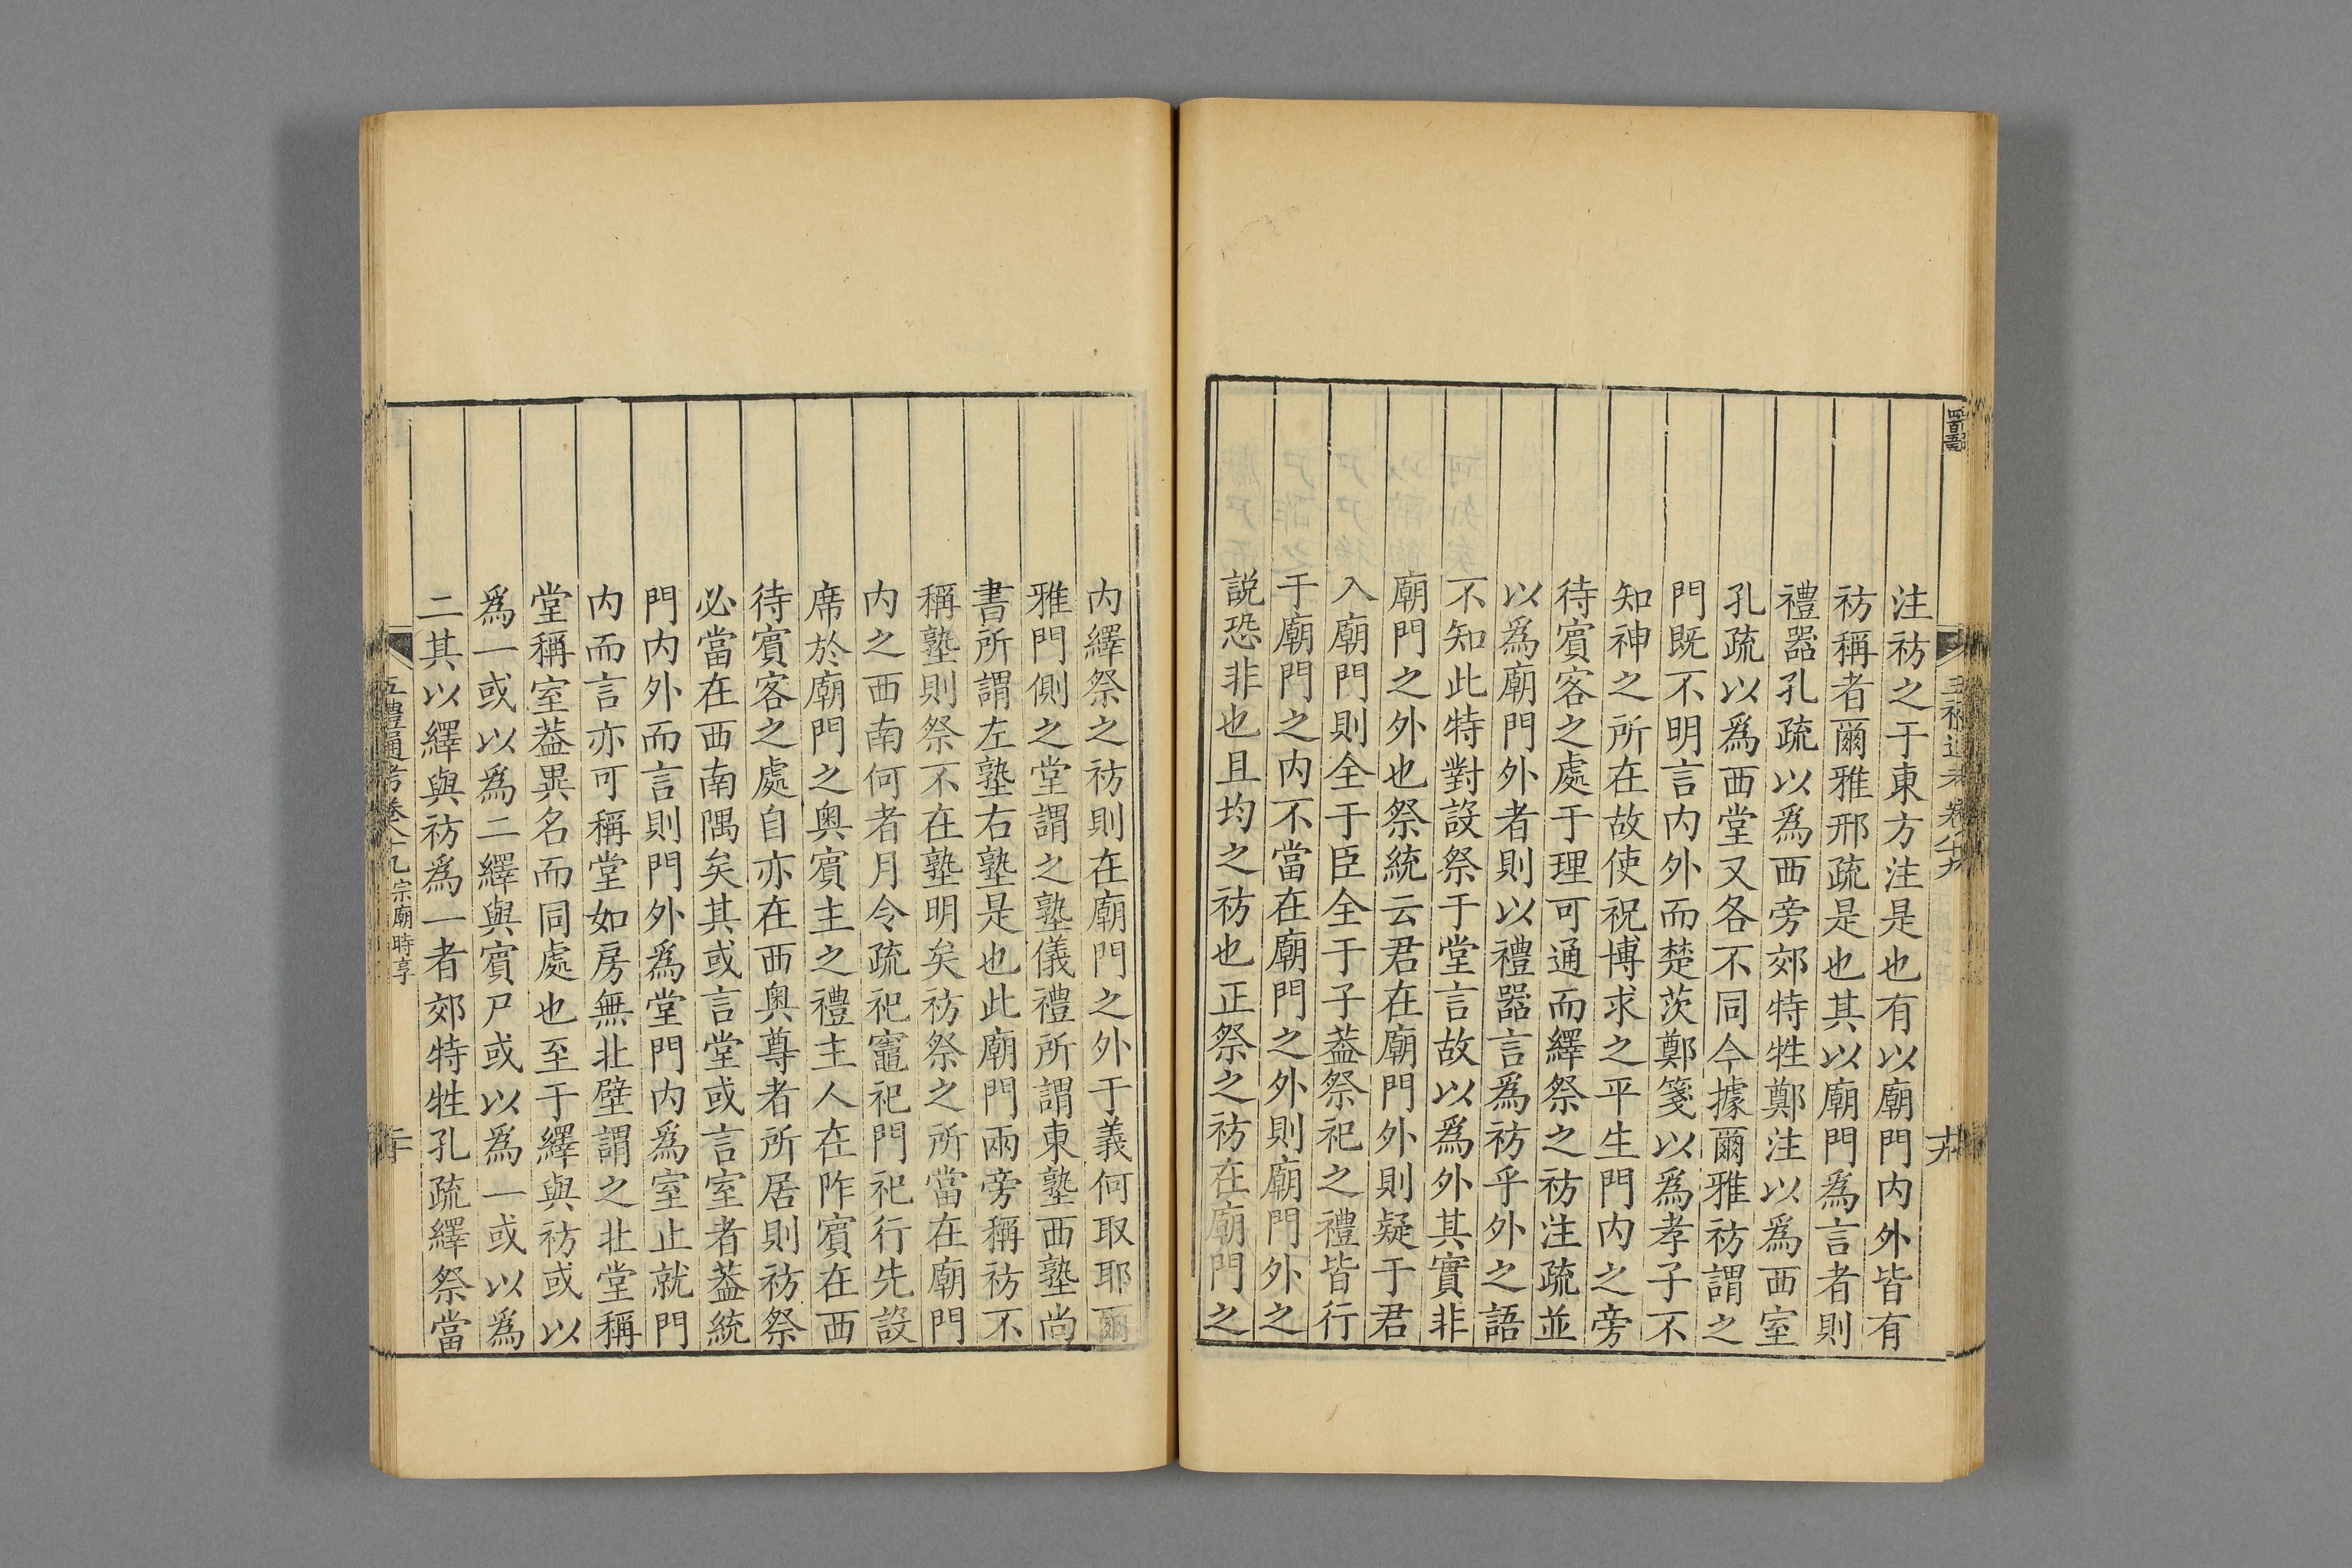 注祊之于東方注是也有以廟門内外皆有
祊稱者爾雅邢疏是也其以廟門爲言者則
禮器孔疏以爲西旁郊特牲鄭注以爲西室
孔疏以爲西堂又各不同今據爾雅祊謂之
門既不明言内外而楚茨鄭箋以爲孝子不
知神之所在故使祝博求之平生門内之旁
待賓客之處于理可通而繹祭之祊注疏並
以爲廟門外者則以禮器言爲祊乎外之語
不知此特對設祭于堂言故以爲外其實非
廟門之外也祭統云君在廟門外則疑于君
入廟門則全于臣全于子葢祭祀之禮皆行
于廟門之内不當在廟門之外則廟門外之
説恐非也且均之祊也正祭之祊在廟門之
内繹祭之祊則在廟門之外于義何取耶爾
雅門側之堂謂之塾儀禮所謂東塾西塾尚
書所謂左塾右塾是也此廟門兩旁稱祊不
稱塾則祭不在塾明矣祊祭之所當在廟門
内之西南何者月令疏祀竈祀門祀行先設
席於廟門之奥賓主之禮主人在阼賓在西
待賓客之處自亦在西奥尊者所居則祊祭
必當在西南隅矣其或言堂或言室者葢統
門内外而言則門外爲堂門内爲室止就門
内而言亦可稱堂如房無北壁謂之北堂稱
堂稱室葢異名而同處也至于繹與祊或以
爲一或以爲二繹與賓尸或以爲一或以爲
二其以繹與祊爲一者郊特牲孔疏繹祭當
五禮通考卷八十九 宗廟時享
二十